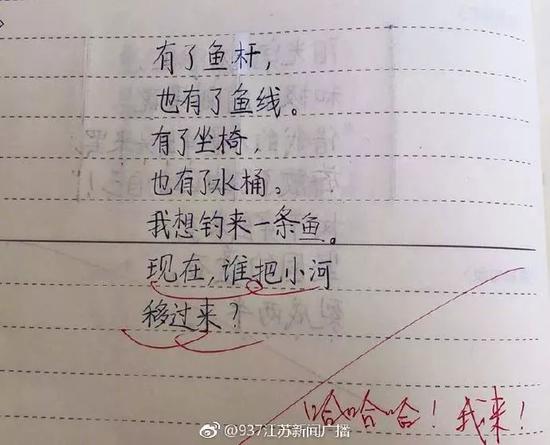 有了鱼杆，
也有了鱼线。
有了坐椅，
也有了水桶。
我想钓来一条鱼。
现在，谁把小河
移过来？
哈哈哈！我来！
@937江苏新闻广播